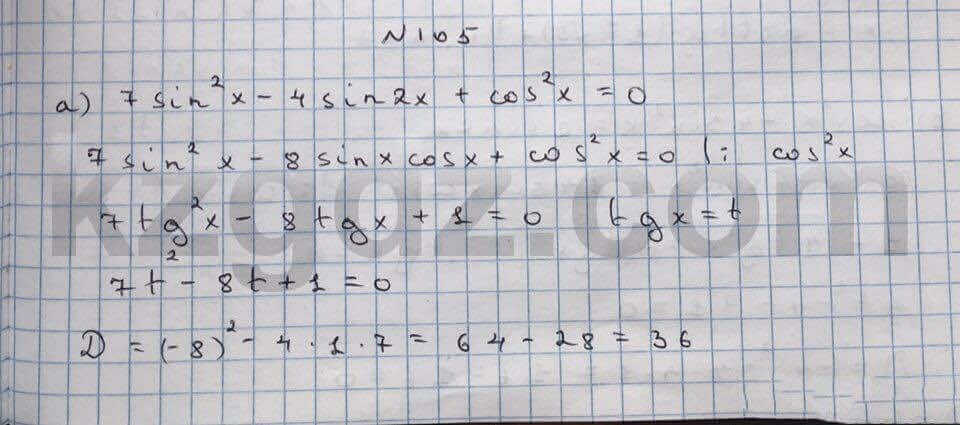 N 105
а) 7 sin²x - 4 sin2x + cos²x = 0
7 sin²x - 8 sinx cosx + cos²x = 0 |: cos²x
7 tg²x - 8 tgx + 1 = 0 tgx = t
7t² - 8t + 1 = 0
D = (-8)² - 4 · 1 · 7 = 64 - 28 = 36
kzgdz.com